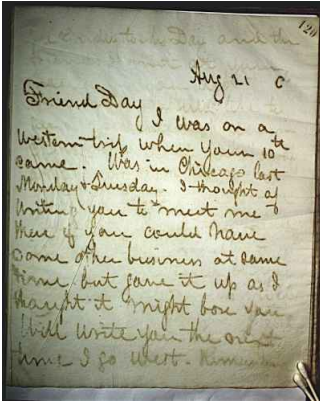 120
Aug 21 6
Friend Day I was on a
western trip when yours 10th
came. Was in Chicago last
Monday & Tuesday. I thought of
writing you to meet me
there if you could have
some other business at same
time, but gave it up as I
thought it might bore you
Will write you the next
time I go West.